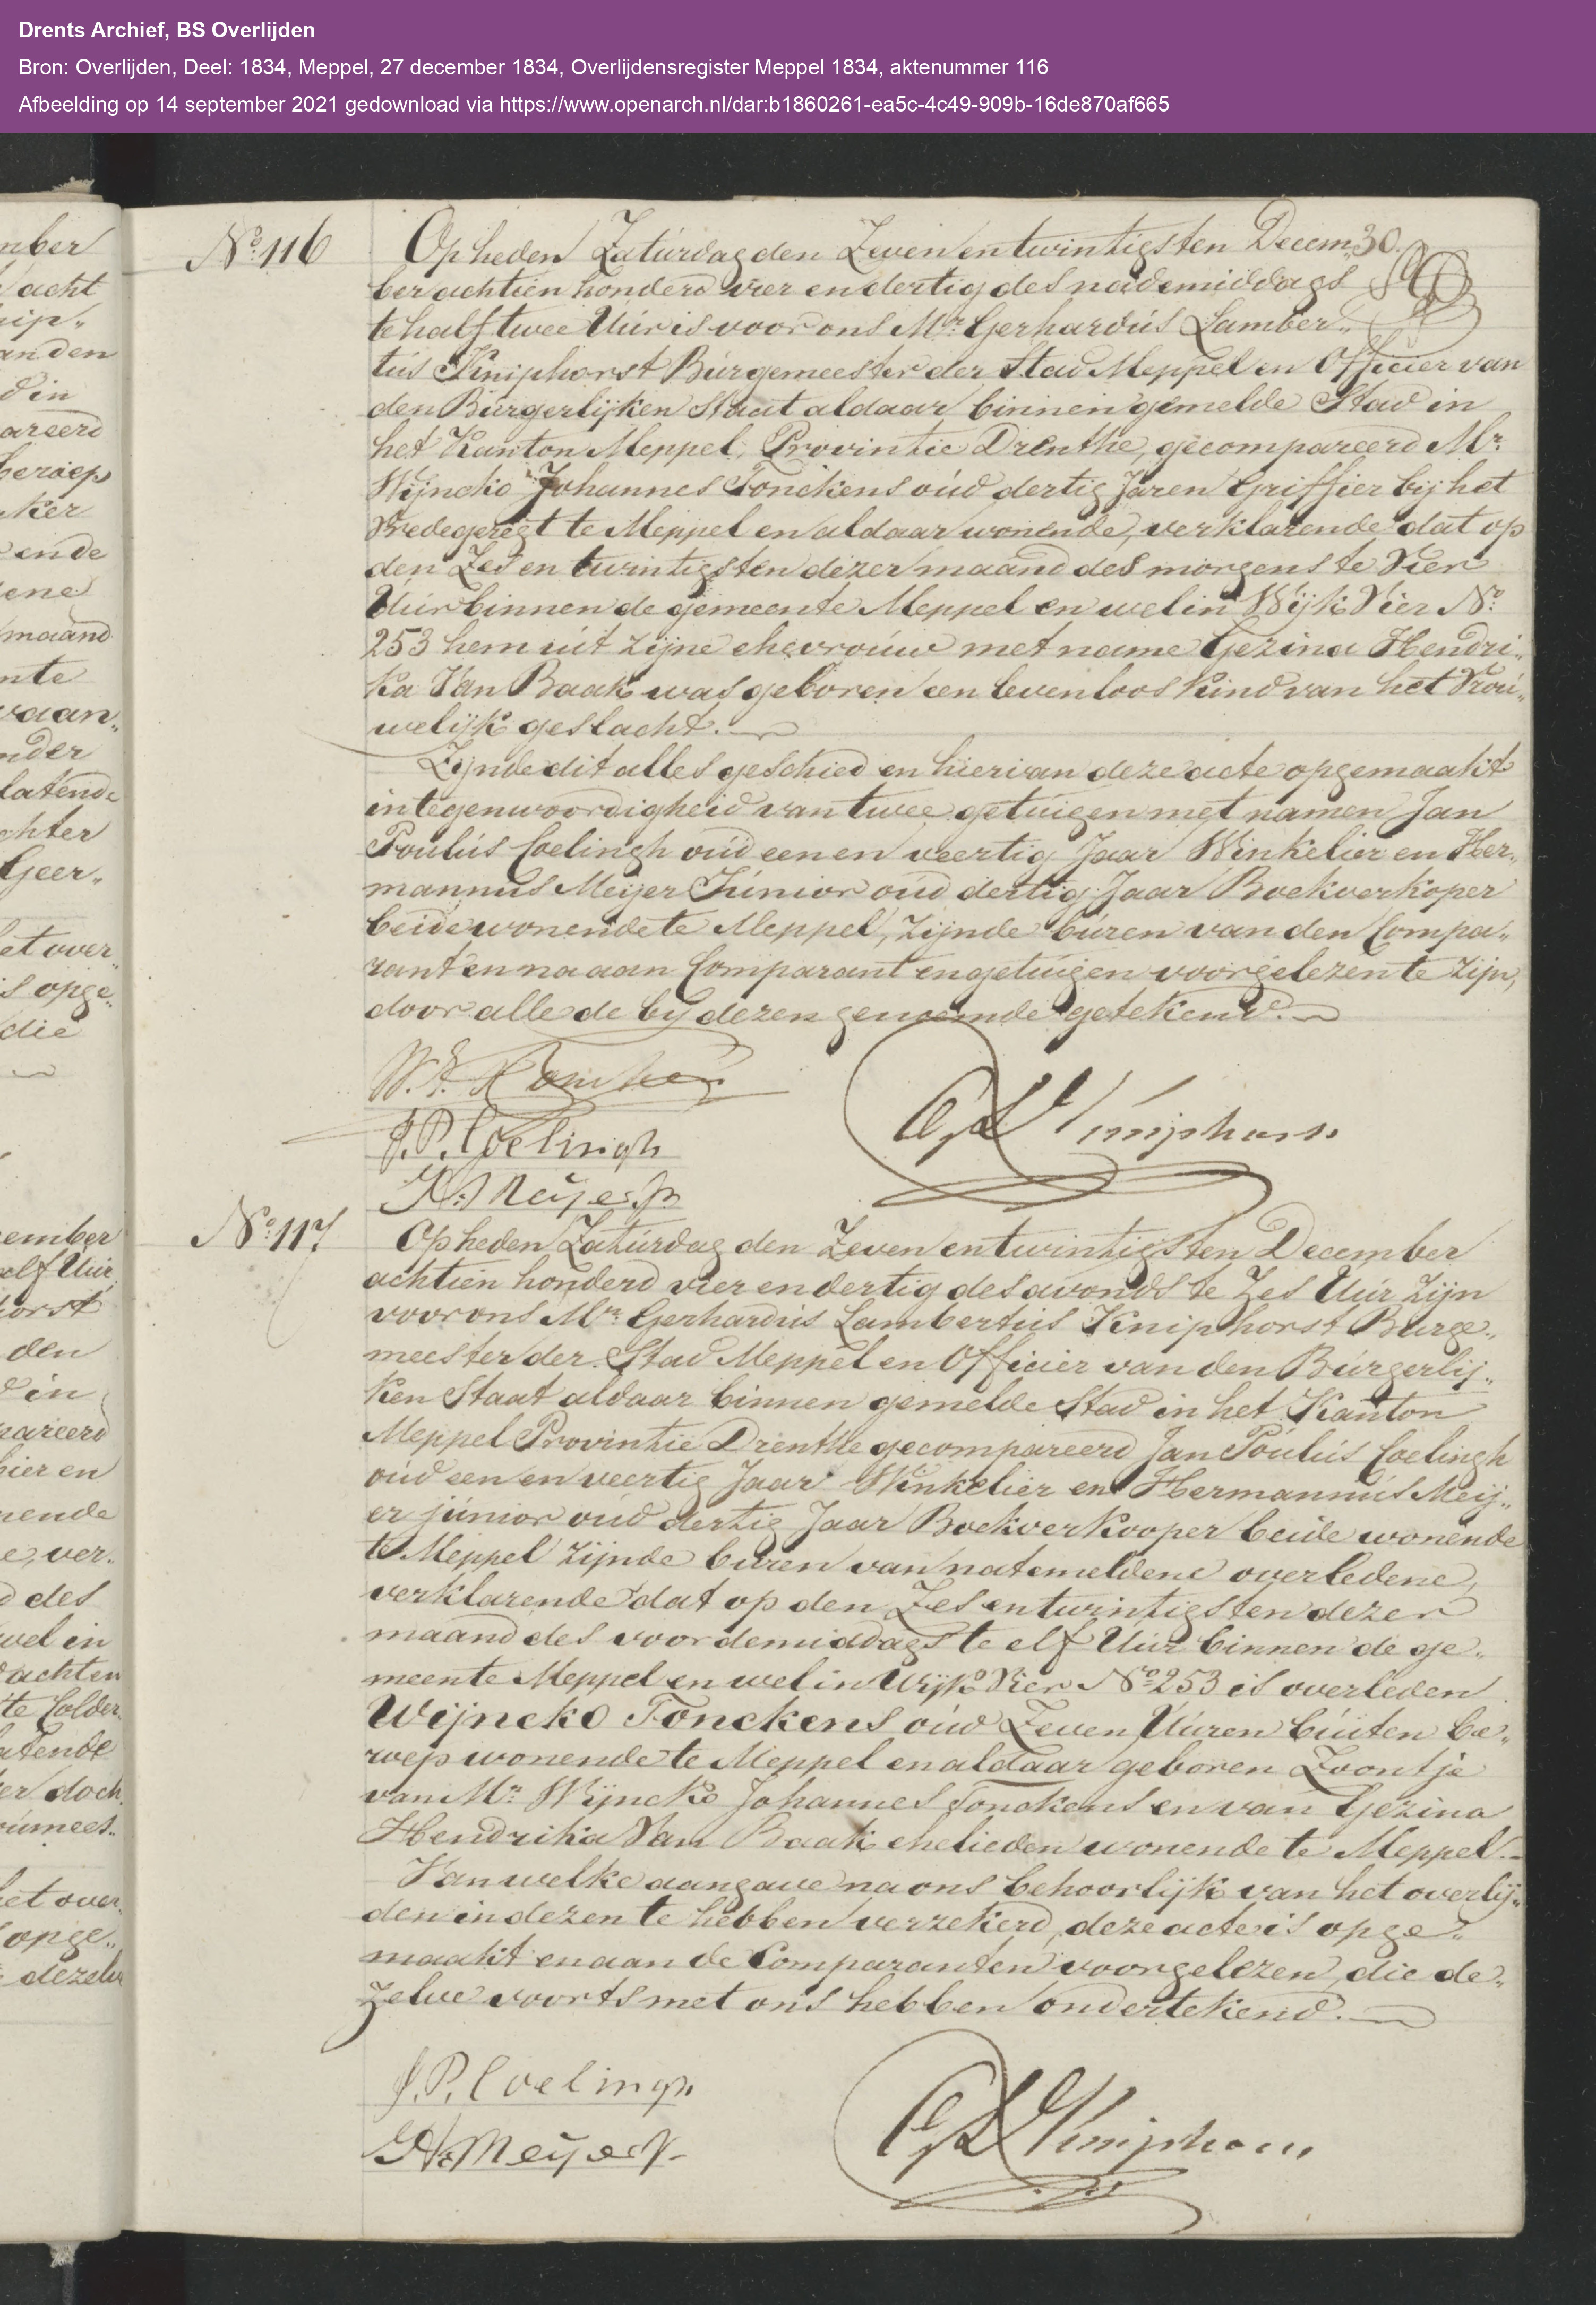 Drents Archief, BS Overlijden
Bron: Overlijden, Deel: 1834, Meppel, 27 december 1834, Overlijdensregister Meppel 1834, aktenummer 116
Afbeelding op 14 september 2021 gedownload via https://www.openarch.nl/dar:b1860261-ea5c-4c49-909b-16de870af665
mber
acht
nip„
anden
d in
areerd
beroep
ker
ende
ene
maand
nte
vaan„
nder
latende
chter
Geer„
et over„
s opge„
die
ember
elf Uúr
horst
den
d in
pareerd
nier en
nende
e, ver„
d des
wel in
achten
te Colder„
atende
er doch„
et over„
opge„
dezelve
No. 116
Op heden Zatúrdag den Zeven en twintigsten Decem„ 30.
ber achtien honderd vier en dertig des nademiddags
te half twee Uúr is voor ons Mr. Gerhardús Lamber„
tús Kniphorst Búrgemeester der Stad Meppel en Officier van
den Búrgerlijken Staat aldaar binnen gemelde Stad in
het Kanton Meppel, Provintie Drenthe, gecompareerd Mr.
Wijncko Johannes Tonckens oúd dertig Jaren Griffier bij het
Vredegeregt te Meppel en aldaar wonende, verklarende dat op
den Zes en twintigsten dezer maand des morgens te Vier
Uúr binnen de gemeente Meppel en wel in Wijk Vier No.
253 hem uit zijne ehevroúw met name Gezina Hendri„
ka Van Baak was geboren een levenloos kind van het Vroú„
welijk geslacht.
Zijnde dit alles geschied en hiervan deze acte opgemaakt
in tegenwoordigheid van twee getúigen met namen Jan
Poulús Coelingh oúd een en veertig Jaar Winkelier en Her„
mannús Meijer Júnior oúd dertig Jaar Boekverkoper
beide wonende te Meppel, zijnde búren van den Compa„
rant en na aan Comparant en getúigen voorgelezen te zijn,
door alle de bij dezen genoemde getekend.
W. J.
J. P. Coelingh
H. Meyer Jr
G L Kniphorst
No. 117
Op heden Zatúrdag den Zeven en twintigsten December
achtien honderd vier en dertig des avonds te Zes Uúr zijn
voor ons Mr. Gerhardús Lambertús Kniphorst Búrge„
meester der Stad Meppel en Officier van den Búrgerlij„
ken Staat aldaar binnen gemelde Stad in het Kanton
Meppel Provintie Drenthe gecompareerd Jan Poúlús Coelingh
oúd een en veertig Jaar Winkelier en Hermannús Meij„
er júnior oúd dertig Jaar Boekverkooper beide wonende
te Meppel zijnde buren van natemeldene overledene,
verklarende dat op den Zes en twintigsten dezer
maand des voordemiddags te elf Uúr binnen de ge„
meente Meppel en wel in Wijk Vier No. 253 is overleden
Wijncko Tonckens oúd Zeven Uúren búiten be„
roep wonende te Meppel en aldaar geboren Zoontje
van Mr. Wijncko Johannes Tonckens en van Gezina
Hendrika Van Baak ehelieden wonende te Meppel.
Van welke aangave na ons behoorlijk van het overlij„
den in dezen te hebben verzekerd, deze acte is opge„
maakt en aan de Comparanten voorgelezen, die de„
zelve voorts met ons hebben ondertekend.
J. P. Coelingh
H. Meyer Jr
G L Kniphorst